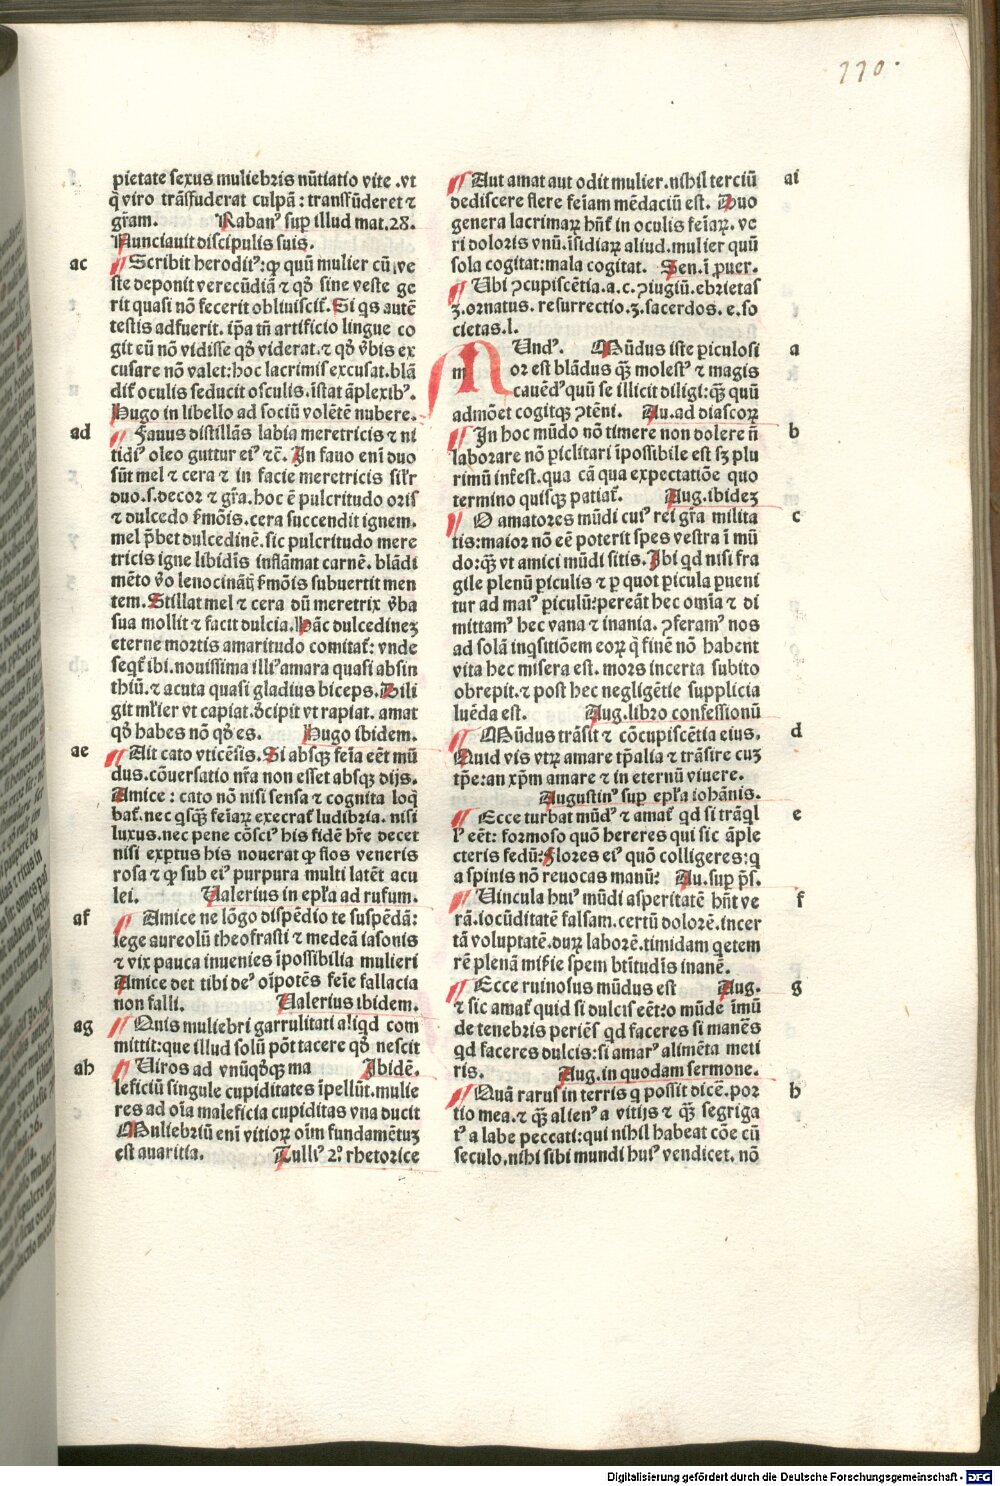 110.
pietate sexus muliebris nūtiatio vite .vt
q̄ viro trāsfuderat culpā : transfūderet ⁊
gr̄am. Raban⁹ suꝑ illud mat.28.
Nunciauit discipulis suis.
ac Scribit herodi⁹:ꝙ quū mulier cū ve
ste deponit verecūdiā ⁊ qđ sine veste ge
rit quasi nō fecerit obliuiscit̄. Si qs autē
testis adfuerit. ip̄a tn̄ artificio lingue co
git eū nō vidisse qđ viderat.⁊ qđ v̄bis ex
cusare nō valet:hoc lacrimis excusat.blā
dit̄ oculis seducit osculis.īstat āplexib⁹.
Hugo in libello ad sociū volētē nubere.
ad Fauus distillās labia meretricis ⁊ ni
tidi⁹ oleo guttur ei⁹ ⁊c̄. In fauo eni duo
sūt mel ⁊ cera ⁊ in facie meretricis sil̄r
duo.s.decor ⁊ gr̄a.hoc ē pulcritudo oris
⁊ dulcedo ẜmōis.cera succendit ignem.
mel p̄bet dulcedinē.sic pulcritudo mere
tricis igne libidīs inflāmat carnē. blādi
mēto v̄o lenocināti ẜmōis subuertit men
tem. Stillat mel ⁊ cera dū meretrix v̄ba
sua mollit ⁊ facit dulcia. Hāc dulcedineʒ
eterne mortis amaritudo comitat̄: vnde
seqt̄ ibi.nouissima illi⁹ amara quasi absin
thiū.⁊ acuta quasi gladius biceps. Dili
git ml̄ier vt capiat.d̄cipit vt rapiat. amat
qđ habes nō qđ es. Hugo ibidem.
ae Ait cato vticēsis. Si absqꝫ feīa eēt mū
dus.cōuersatio nr̄a non esset absqꝫ dijs.
Amice : cato nō nisi sensa ⁊ cognita loq̄
bat̄. nec qsqꝫ feīaꝝ execrat̄ ludibria. nisi
luxus.nec pene cōsci⁹ his fidē hr̄e decet
nisi exꝑtus his nouerat ꝙ flos veneris
rosa ⁊ ꝙ sub ei⁹ purpura multi latēt acu
lei. Valerius in epl̄a ad rufum.
af Amice ne lōgo dispēdio te suspēdā:
lege aureolū theofrasti ⁊ medeā iasonis
⁊ vix pauca inuenies īpossibilia mulieri
Amice det tibi de⁹ oīpotēs feīe fallacia
non falli. Valerius ibidem.
ag Quis muliebri garrulitati aliqd com
mittit:que illud solū pōt tacere qđ nescit
ah Viros ad vnūqđqꝫ ma Ibidē.
leficiū singule cupiditates īpellūt.mulie
res ad oīa maleficia cupiditas vna ducit
Muliebriū eni vitioꝝ oīm fundamētuʒ
est auaritia. Tulli⁹ 2⁰ rhetorice
Aut amat aut odit mulier.nihil terciū ai
dediscere flere feīam mēdaciū est. Duo
genera lacrimaꝝ hn̄t in oculis feīaꝝ. ve
ri doloris vnū.īsidiaꝝ aliud.mulier quū
sola cogitat:mala cogitat. Sen.ī ꝓuer.
Vbi ꝯcupiscētia.a.c.ꝯiugiū.ebrietas
ʒ.ornatus. resurrectio.ʒ.sacerdos. e.so
cietas.l.
MVnd⁹. Mūdus iste ꝑiculosi a
m or est blādus qꝫ molest⁹ ⁊ magis
cauēd⁹ quū se illicit diligi:qꝫ quū
admōet cogitqꝫ ꝯtēni. Au.ad diascoꝝ
In hoc mūdo nō timere non dolere n̄ b
laborare nō ꝑiclitari īpossibile est sʒ plu
rimū infest.qua cā qua expectatiōe quo
termino quisqꝫ patiat̄. Aug.ibideʒ
O amatores mūdi cui⁹ rei gr̄a milita c
tis:maior nō eē poterit spes vestra ī mū
do:qꝫ vt amici mūdi sitis. Ibi qd nisi fra
gile plenū ꝑiculis ⁊ ꝑ quot ꝑicula ꝑueni
tur ad mai⁹ ꝑiculū:pereāt hec omīa ⁊ di
mittam⁹ hec vana ⁊ inania. ꝯferam⁹ nos
ad solā inqsitiōem eoꝝ q̄ finē nō habent
vita hec misera est. mors incerta subito
obrepit.⁊ post hec negligētie supplicia
luēda est. Aug.libro confessionū
Mūdus trāsit ⁊ cōcupiscētia eius. d
Quid vis vtꝝ amare tp̄alia ⁊ trāsire cuʒ
tp̄e:an xp̄m amare ⁊ in eternū viuere.
Augustin⁹ suꝑ epl̄a iohānis.
Ecce turbat mūd⁹ ⁊ amat̄ qd si trāqꝉ e
l⁹ eēt: formoso quō hereres qui sic āple
cteris fedū:flores ei⁹ quō colligeres:q
a spinis nō reuocas manū: Au.suꝑ ps̄.
Vincula hui⁹ mūdi asperitatē hn̄t ve f
rā.iocūditatē falsam.certū dolorē.incer
tā voluptatē.duꝝ laborē.timidam qetem
rē plenā mis̄ie spem btītudīs inanē.
Ecce ruinosus mūdus est Aug. g
⁊ sic amat̄ quid si dulcis eēt:o mūde īmū
de tenebris periēs qd faceres si manēs
qd faceres dulcis:si amar⁹ alimēta meti
ris. Aug.in quodam sermone.
Quā rarus in terris q possit dicē.por h
tio mea.⁊ qꝫ alien⁹ a vitijs ⁊ qꝫ segriga
t⁹ a labe peccati:qui nihil habeat cōe cū
seculo.nihi sibi mundi hui⁹ vendicet. nō
Digitalisierung gefördert durch die Deutsche Forschungsgemeinschaft - DFG